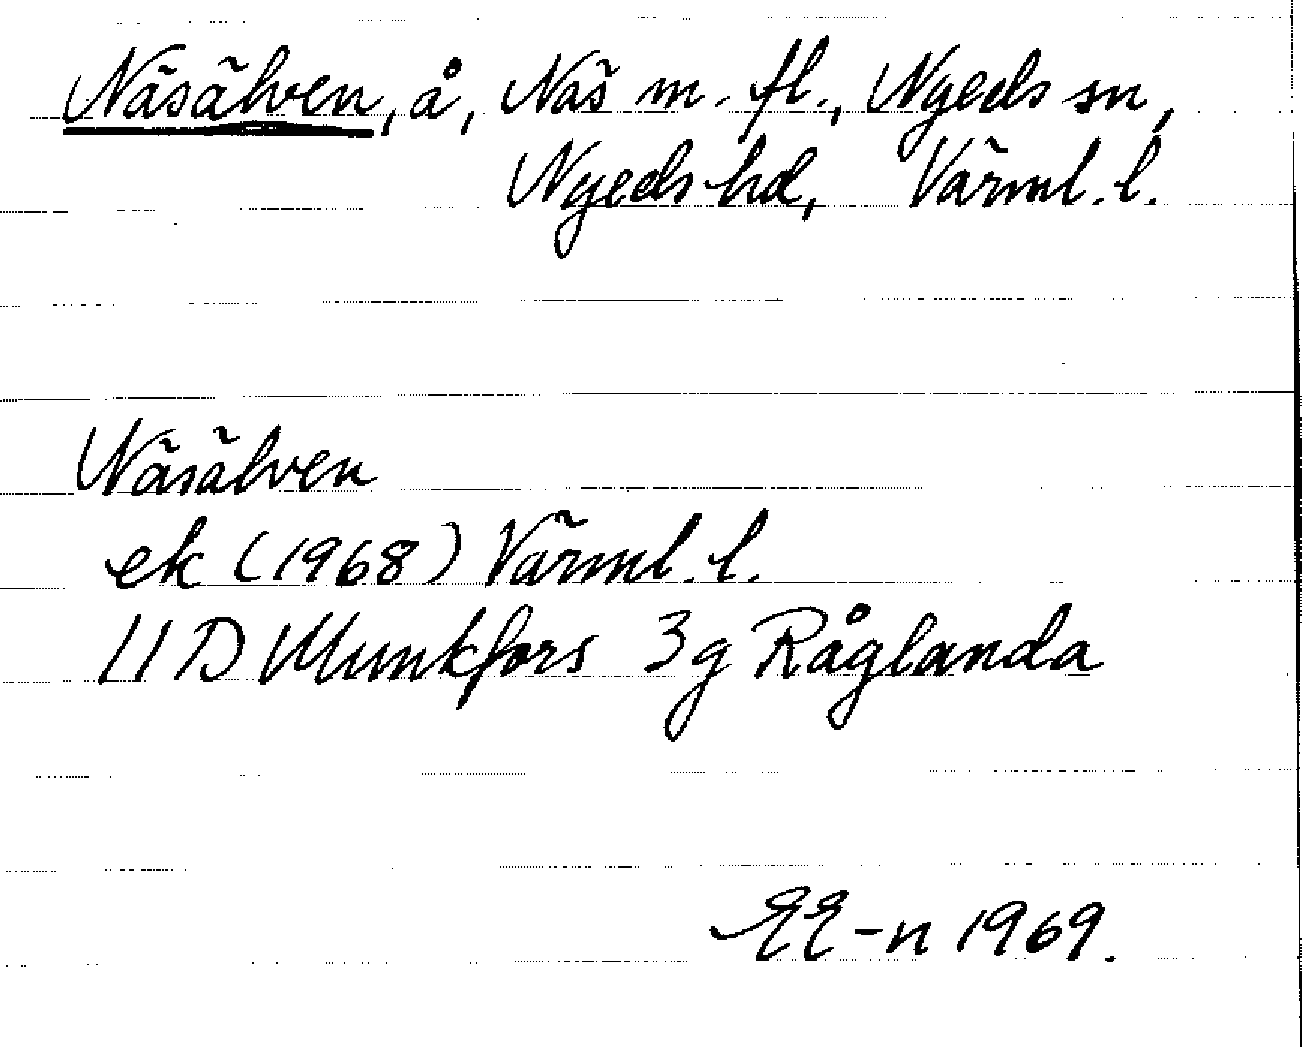 Näsälven, å, Näs m. fl., Nyeds sn,
Nyeds hd, Värml. l.
Näsälven
ek (1968) Värml. l.
11 D Munkfors 3g Råglanda
EE-n 1969.